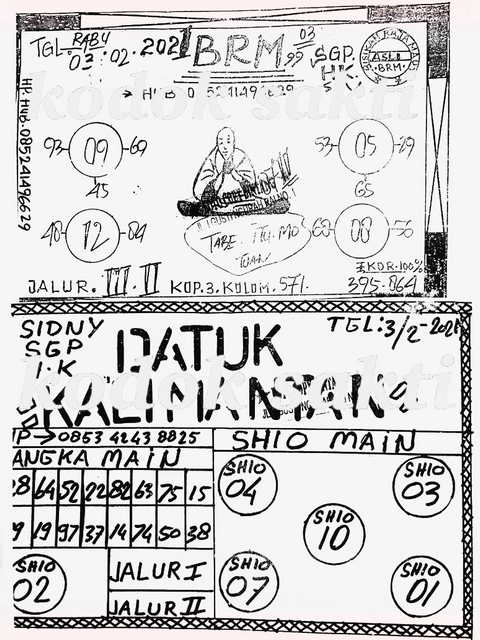 TGL RABU
03.02.2021
BRM
03
99
SGP
HK
ASLI
BRM
kodok sakti
HP. HUB. 085241496629
93 09 69
45
53 05 29
65
40 12 84
60 00 56
TABE.
TUAN
EKOR.100%
JALUR. III. II KOP.3.KOLOM.571. 395.864
SIDNY
SGP
TGL:3/2-2021
DATUK
KALIMANTAN
kodok sakti
0853 4243 8825
ANGKA MAIN
SHIO MAIN
64 52 22 82 63 75 15
19 97 37 14 74 50 38
SHIO
04
SHIO
03
SHIO
10
SHIO
02
JALUR I
JALUR II
SHIO
07
SHIO
01